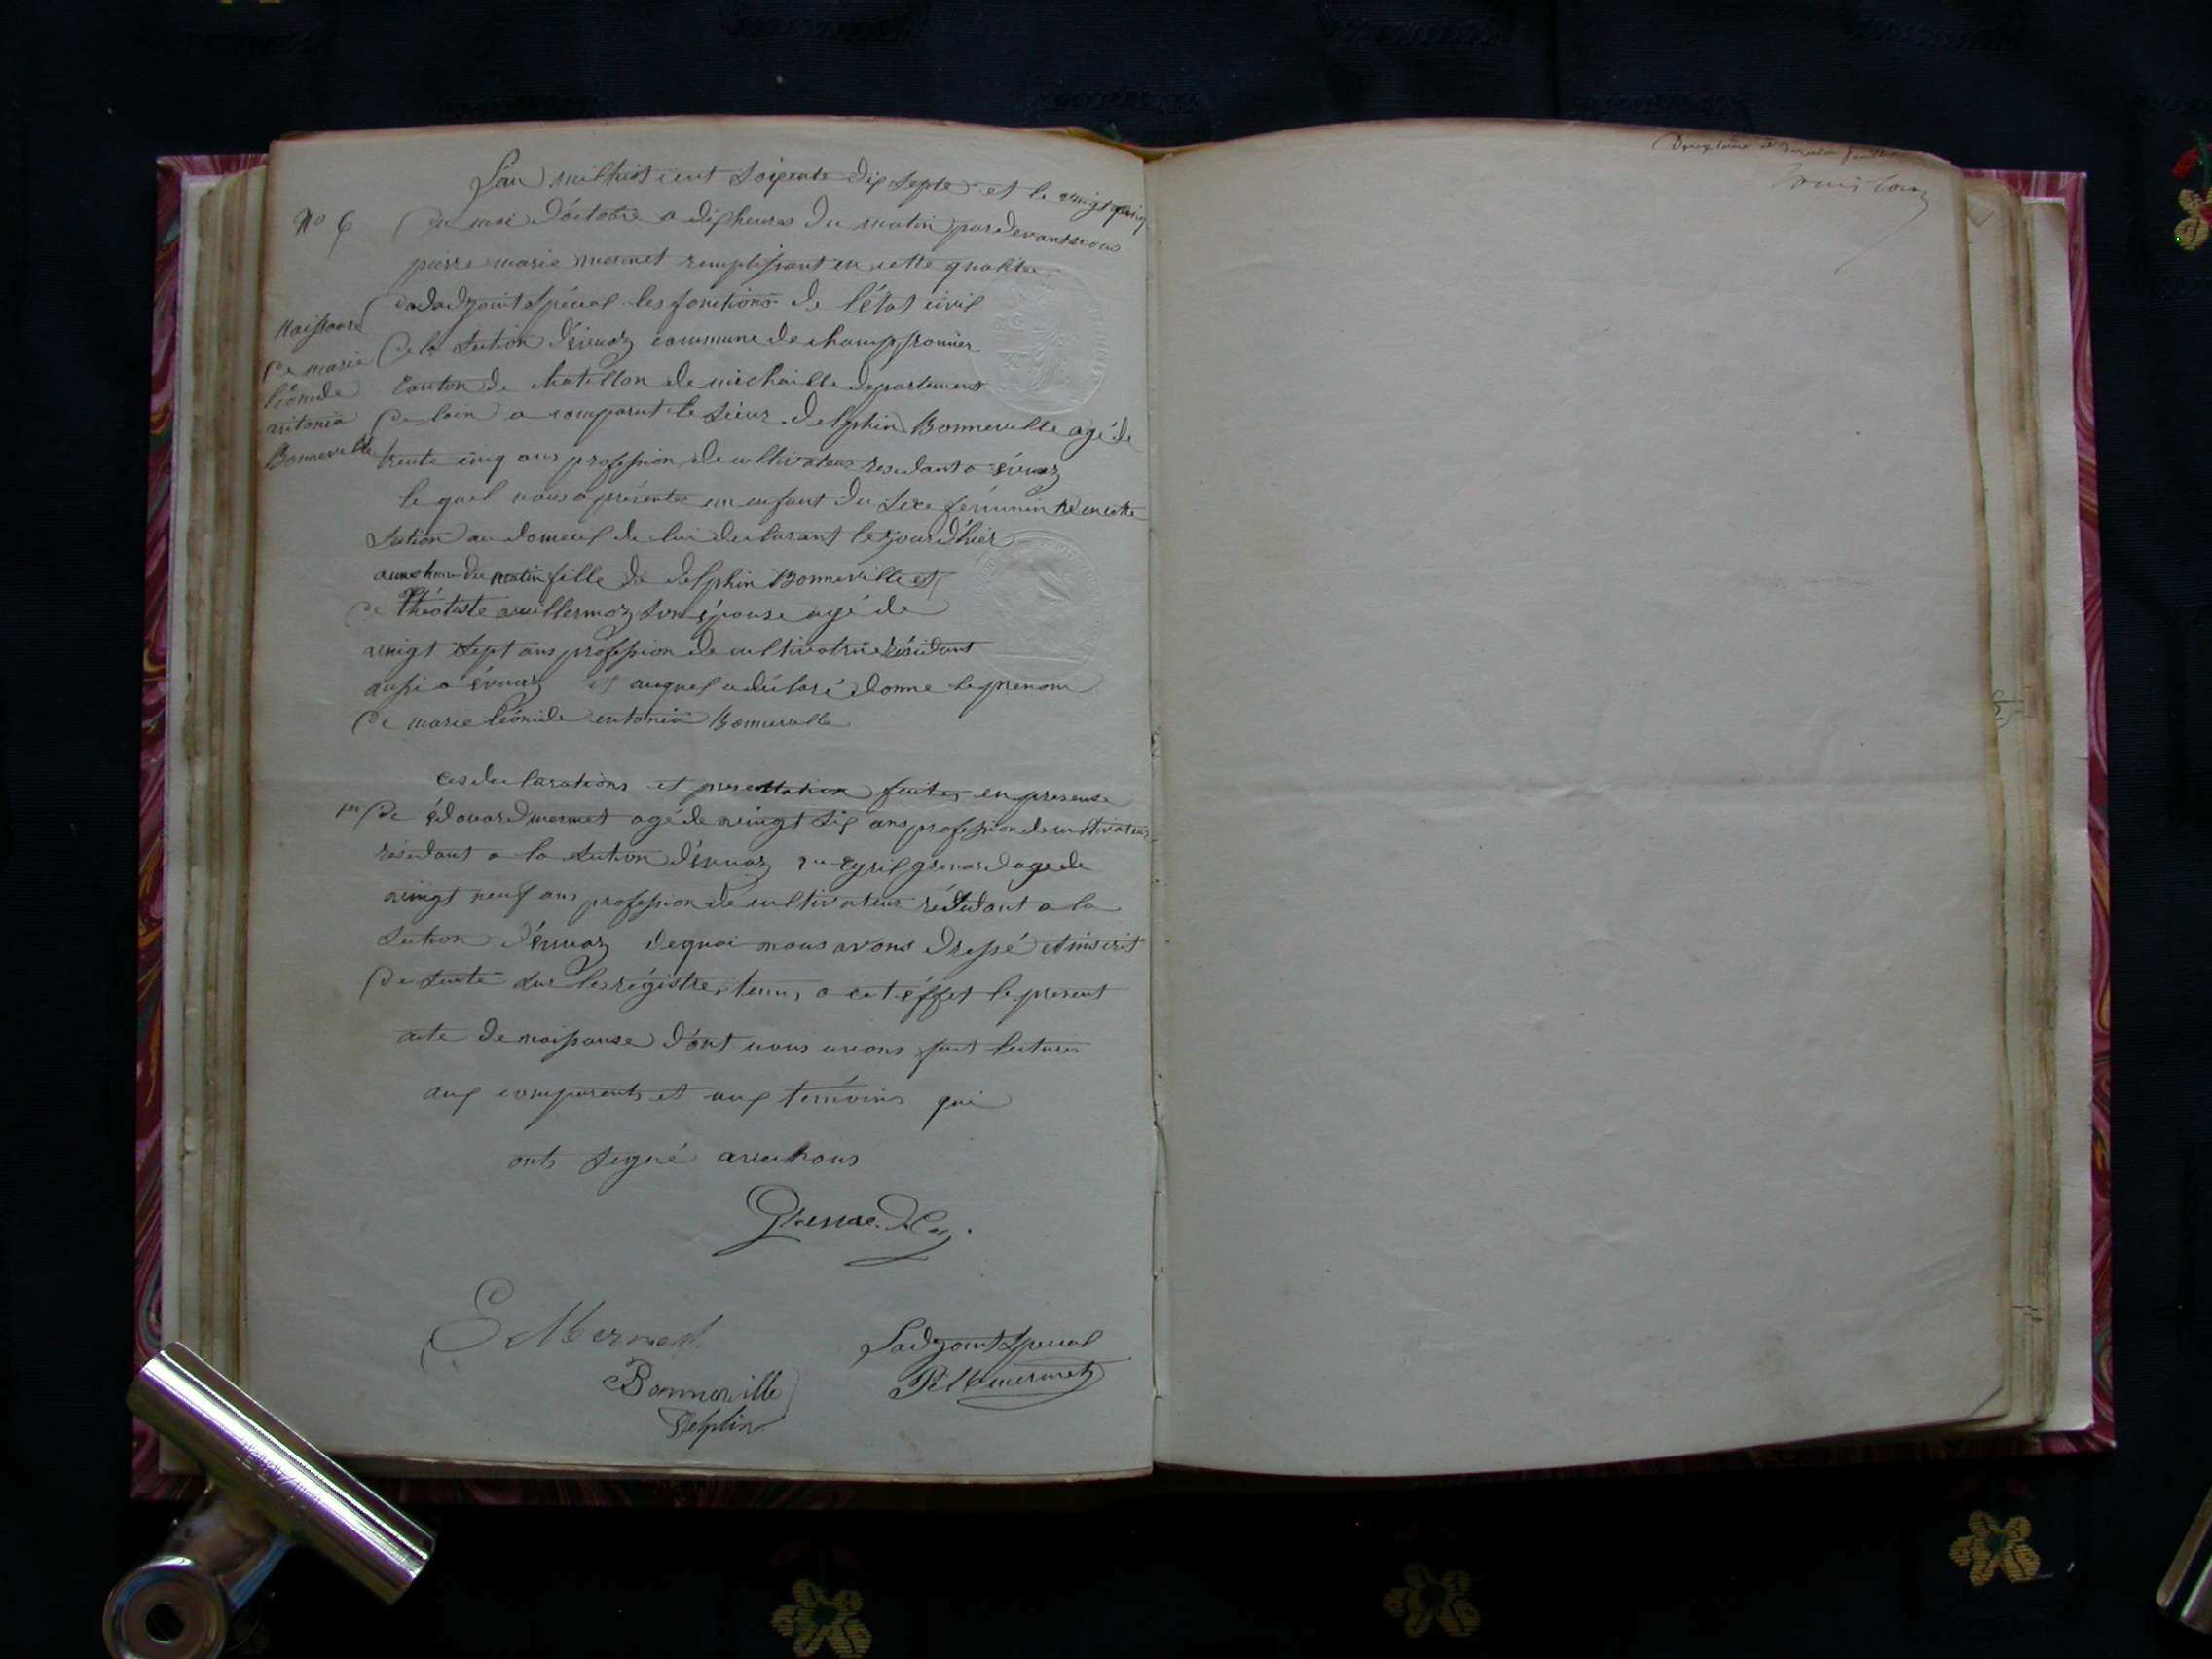 L'an mil huit cent soixante dix septe et le vingt cinq
N° 6
du moi d'octobre a dix heures du matin par devant nous
pierre marie mermet remplissant en cette qualite
d'adadjoint spécial les fonctions de l'état civil
de la section d'évuaz commune de champfromier
canton de chatillon de michaille departement
de lain a comparut le sieur delphin Bonneville agé de
trente cinq ans profession de cultivateur residant a évuaz
le quel nous a présenter un enfant du sexe féminin né en cette
section au domicil de lui declarant le jour d'hier
du matin fille de delphin Bonneville et
de théotiste vuillermoz son épouse agé de
vingt sept ans profession de cultivatrice résidant
aussi a évuaz et auquel a déclaré donné le prenom
de marie léonide antonia Bonneville
Naissance
de marie
léonide
antonia
Bonneville
ces declarations et presentation faites en presense
1er de édouard mermet agé de vingt six ans profession de cultivateur
résidant a la section d'évuaz 2e cyril grenard agé de
vingt neuf ans profession de cultivateur résidant a la
section d'évuaz de quoi nous avons dressé et inscrit
de suite sur les régistres tenus a cet éffet le present
acte de naissanse d'ont nous avons fait lecture
aux comparents et aux témoins qui
onts signé avec nous
Grenard
E Mermet
Ladjoint spécial
Bonneville
Delphin
P M mermet
Deuxième et dernier feuillet